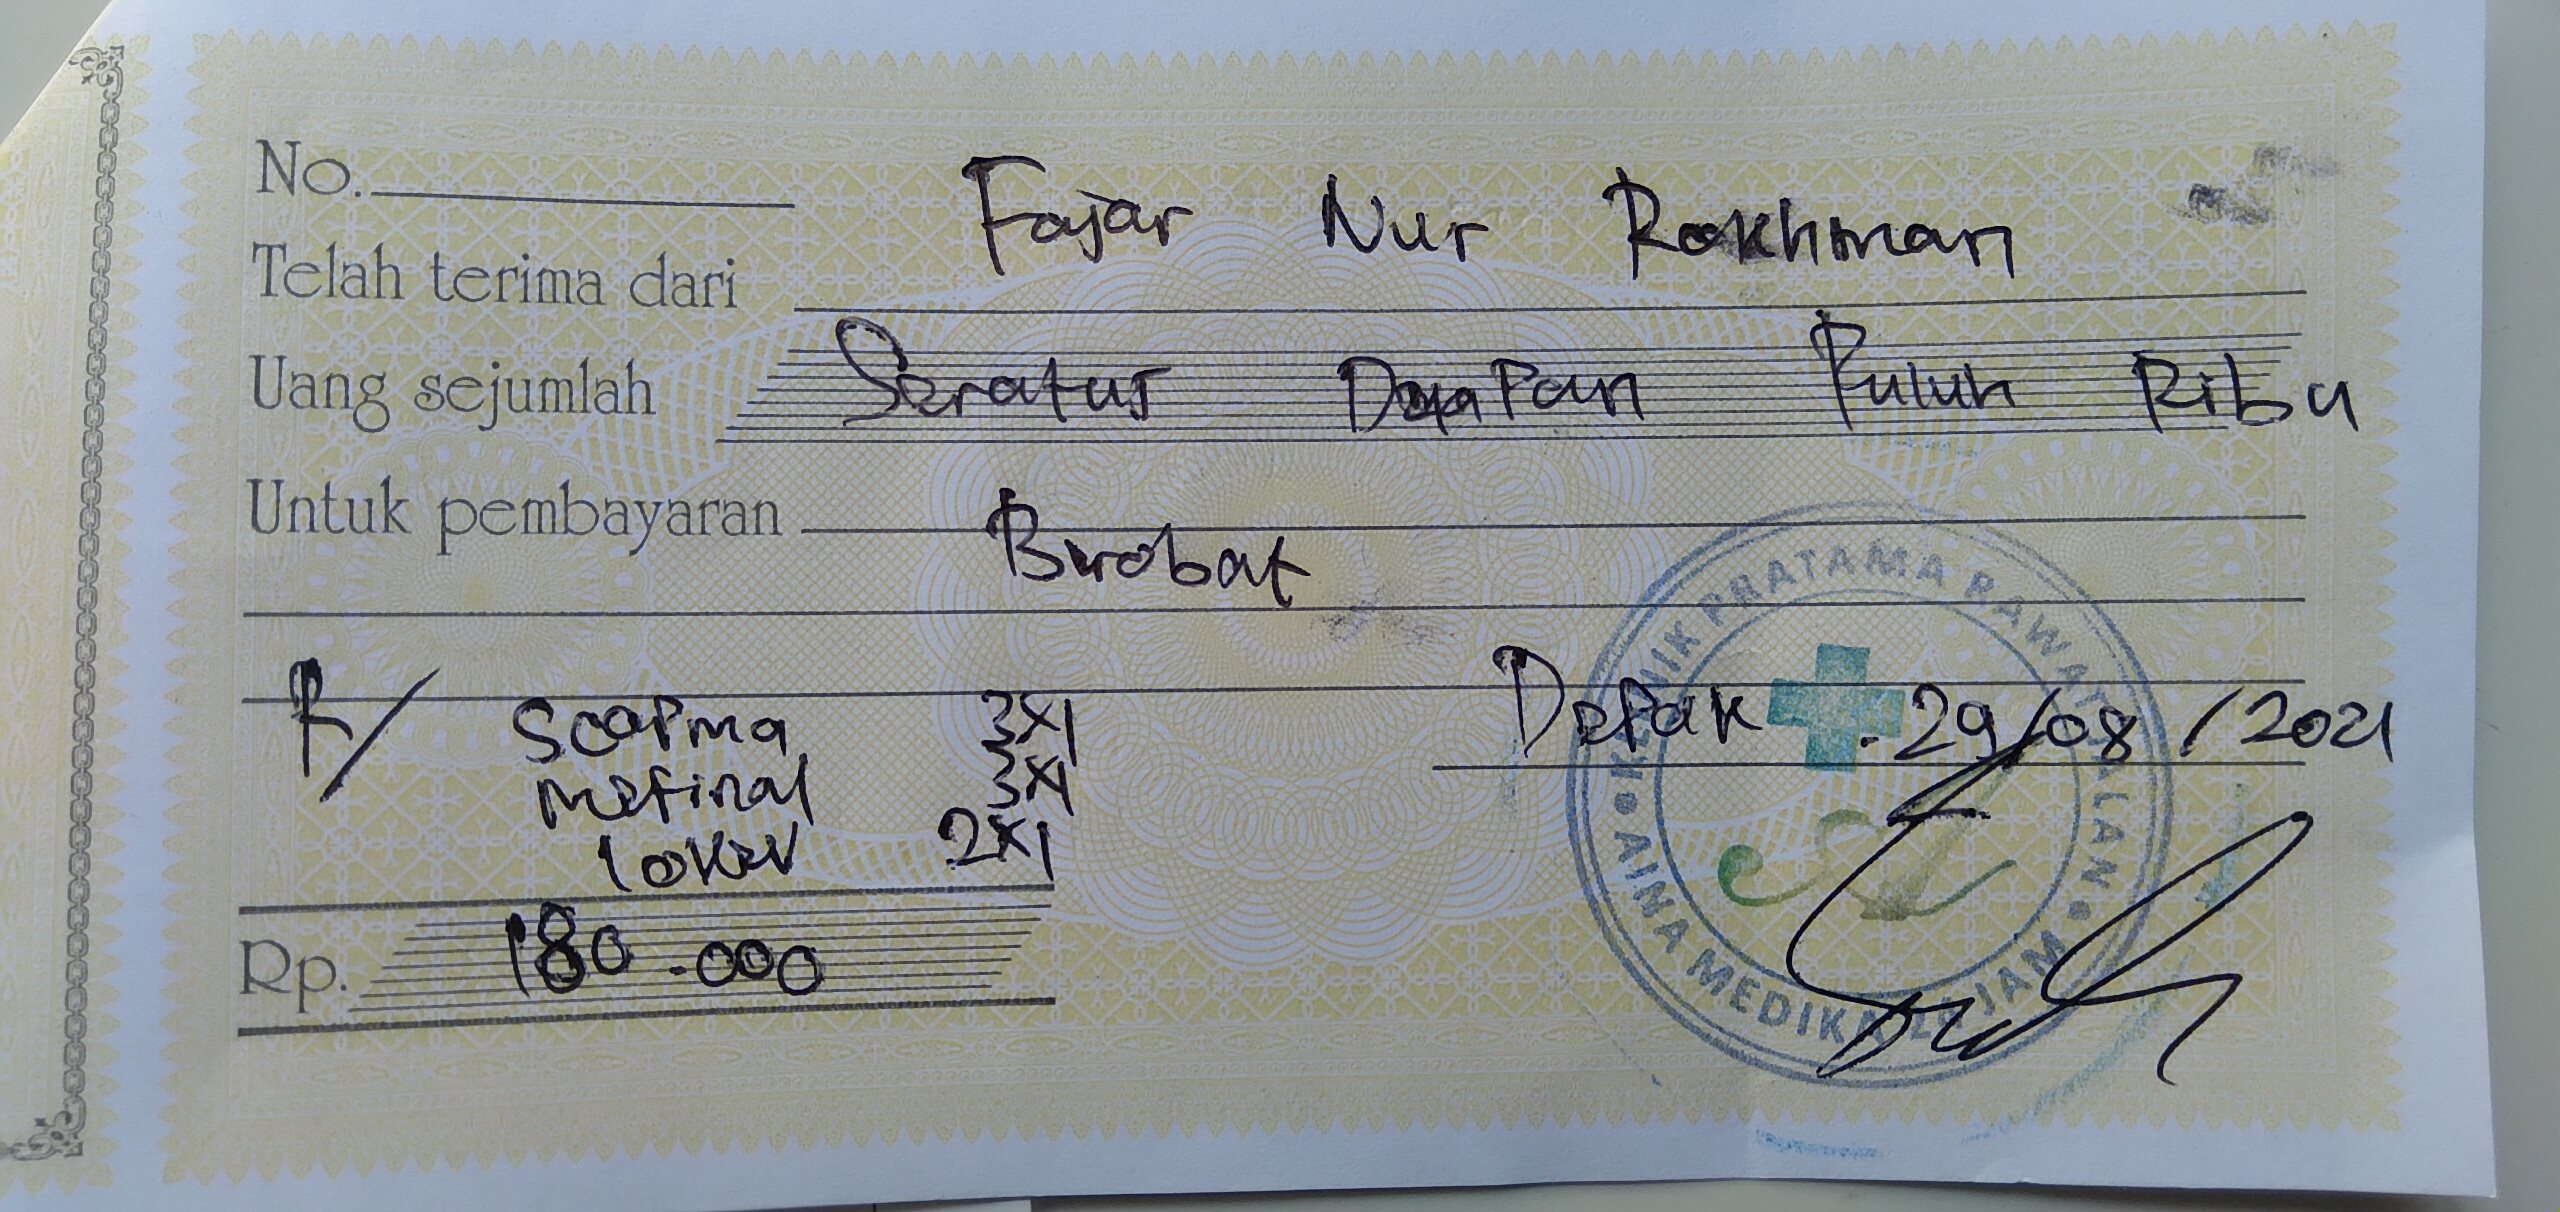 No.
Telah terima dari Fajar Nur Rokhman
Uang sejumlah Seratus Delapan Puluh Ribu
Untuk pembayaran Berobat
R/ scopma 3x1
mefinal 3x1
lokev 2x1
Depak . 29/08/2021
Rp. 180.000
KLINIK PRATAMA RAWAT JALAN
AINA MEDIKA 24 JAM